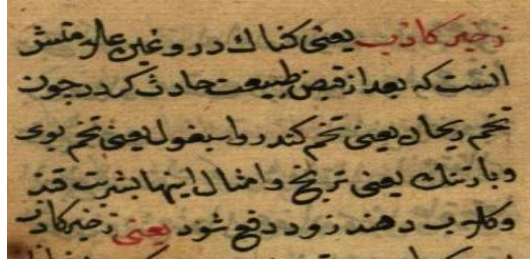 زحیر کاذب یعنی کناک دروغین علامتش
انست که بعد از قبض طبیعت حادث کردد چون
تخم ریحان یعنی تخم کندر واسبغول یعنی تخم بوی
وبارتنک یعنی ترنج وامثال اینها بشربت قند
وکلاب دهند زود دفع شود یعنی زحیر کاذب